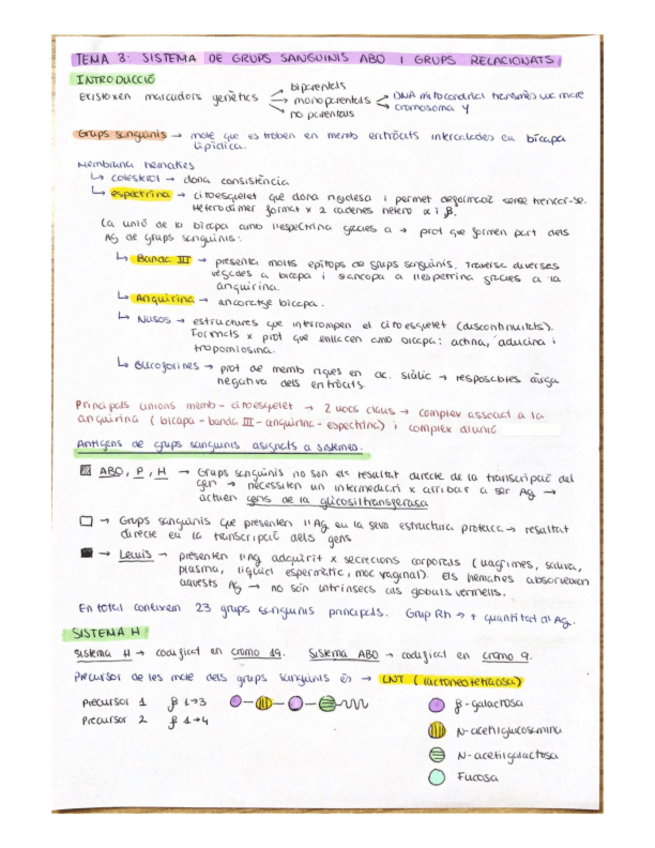 TEMA 3: SISTEMA DE GRUPS SANGUINIS ABO I GRUPS RELACIONATS
INTRODUCCIÓ
Existeixen marcadors genètics → biparentals
→ monoparentals → DNA mitocondrial transmès mare
cromosoma Y
→ no parentals
Grups sanguinis → molè que es troben en memb eritròcits intercalades en bicapa
lipídica.
Membrana hematies
↳ colesterol → dona consistència
↳ espectrina → citoesquelet que dona rigidesa i permet deformació sense trencar-se.
Heterodímer format x 2 cadenes hetero α i β.
La unió de la bicapa amb l'espectrina gràcies a → prot que formen part dels
Ag de grups sanguinis:
↳ Banda III → presenta molts epítops de grups sanguinis. Traversa diverses
vegades a bicapa i s'ancora a l'espectrina gràcies a la
anquirina.
↳ Anquirina → ancoratge bicapa.
↳ Nusos → estructures que interrompen el citoesquelet (discontinuitats).
Formats x prot que enllacen amb bicapa: actina, aducina i
tropomiosina.
↳ Glicoforines → prot de memb riques en àc. siàlic → resposables càrga
negativa dels eritròcits.
Principals unions memb - citoesquelet → 2 llocs claus → complex associat a la
anquirina (bicapa - banda III - anquirina - espectrina) i complex d'unió
Antígens de grups sanguinis asignats a sistemes.
ABO, P, H → Grups sanguinis no son els resultat directe de la transcripció del
gen → necessiten un intermediari x arribar a ser Ag →
actuen gens de la glicosiltransferasa
→ Grups sanguinis que presenten l'Ag en la seva estructura proteica → resultat
directe en la transcripció dels gens
→ Lewis → presenten l'Ag adquirit x secrecions corporals (llàgrimes, saliva,
plasma, líquid espermàtic, moc vaginal). Els hematies absorveixen
aquests Ag → no són intrínsecs als glòbuls vermells.
En total coneixem 23 grups sanguinis principals. Grup Rh → + quantitat d'Ag.
SISTEMA H
Sistema H → codificat en cromo 19. Sistema ABO → codificat en cromo 9.
Precursor de les molè dels grups sanguinis és → LNT (lactoneotetraosa)
Precursor 1 β 1→3
Precursor 2 β 1→4
β-galactosa
N-acetilglucosamina
N-acetilgalactosa
Fucosa